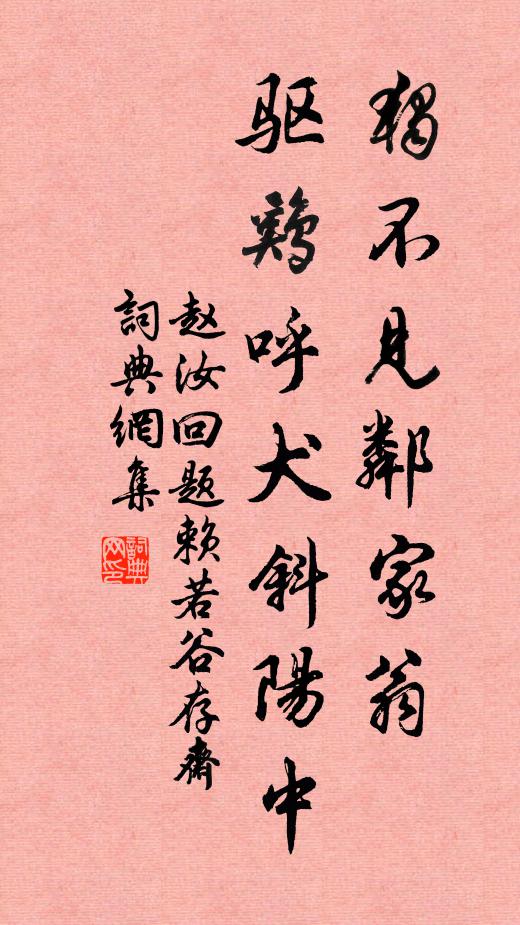 獨不見鄰家翁
驱鷄呼犬斜陽中
赵汝回题赖若谷存齋
詞典網集
詞典网印